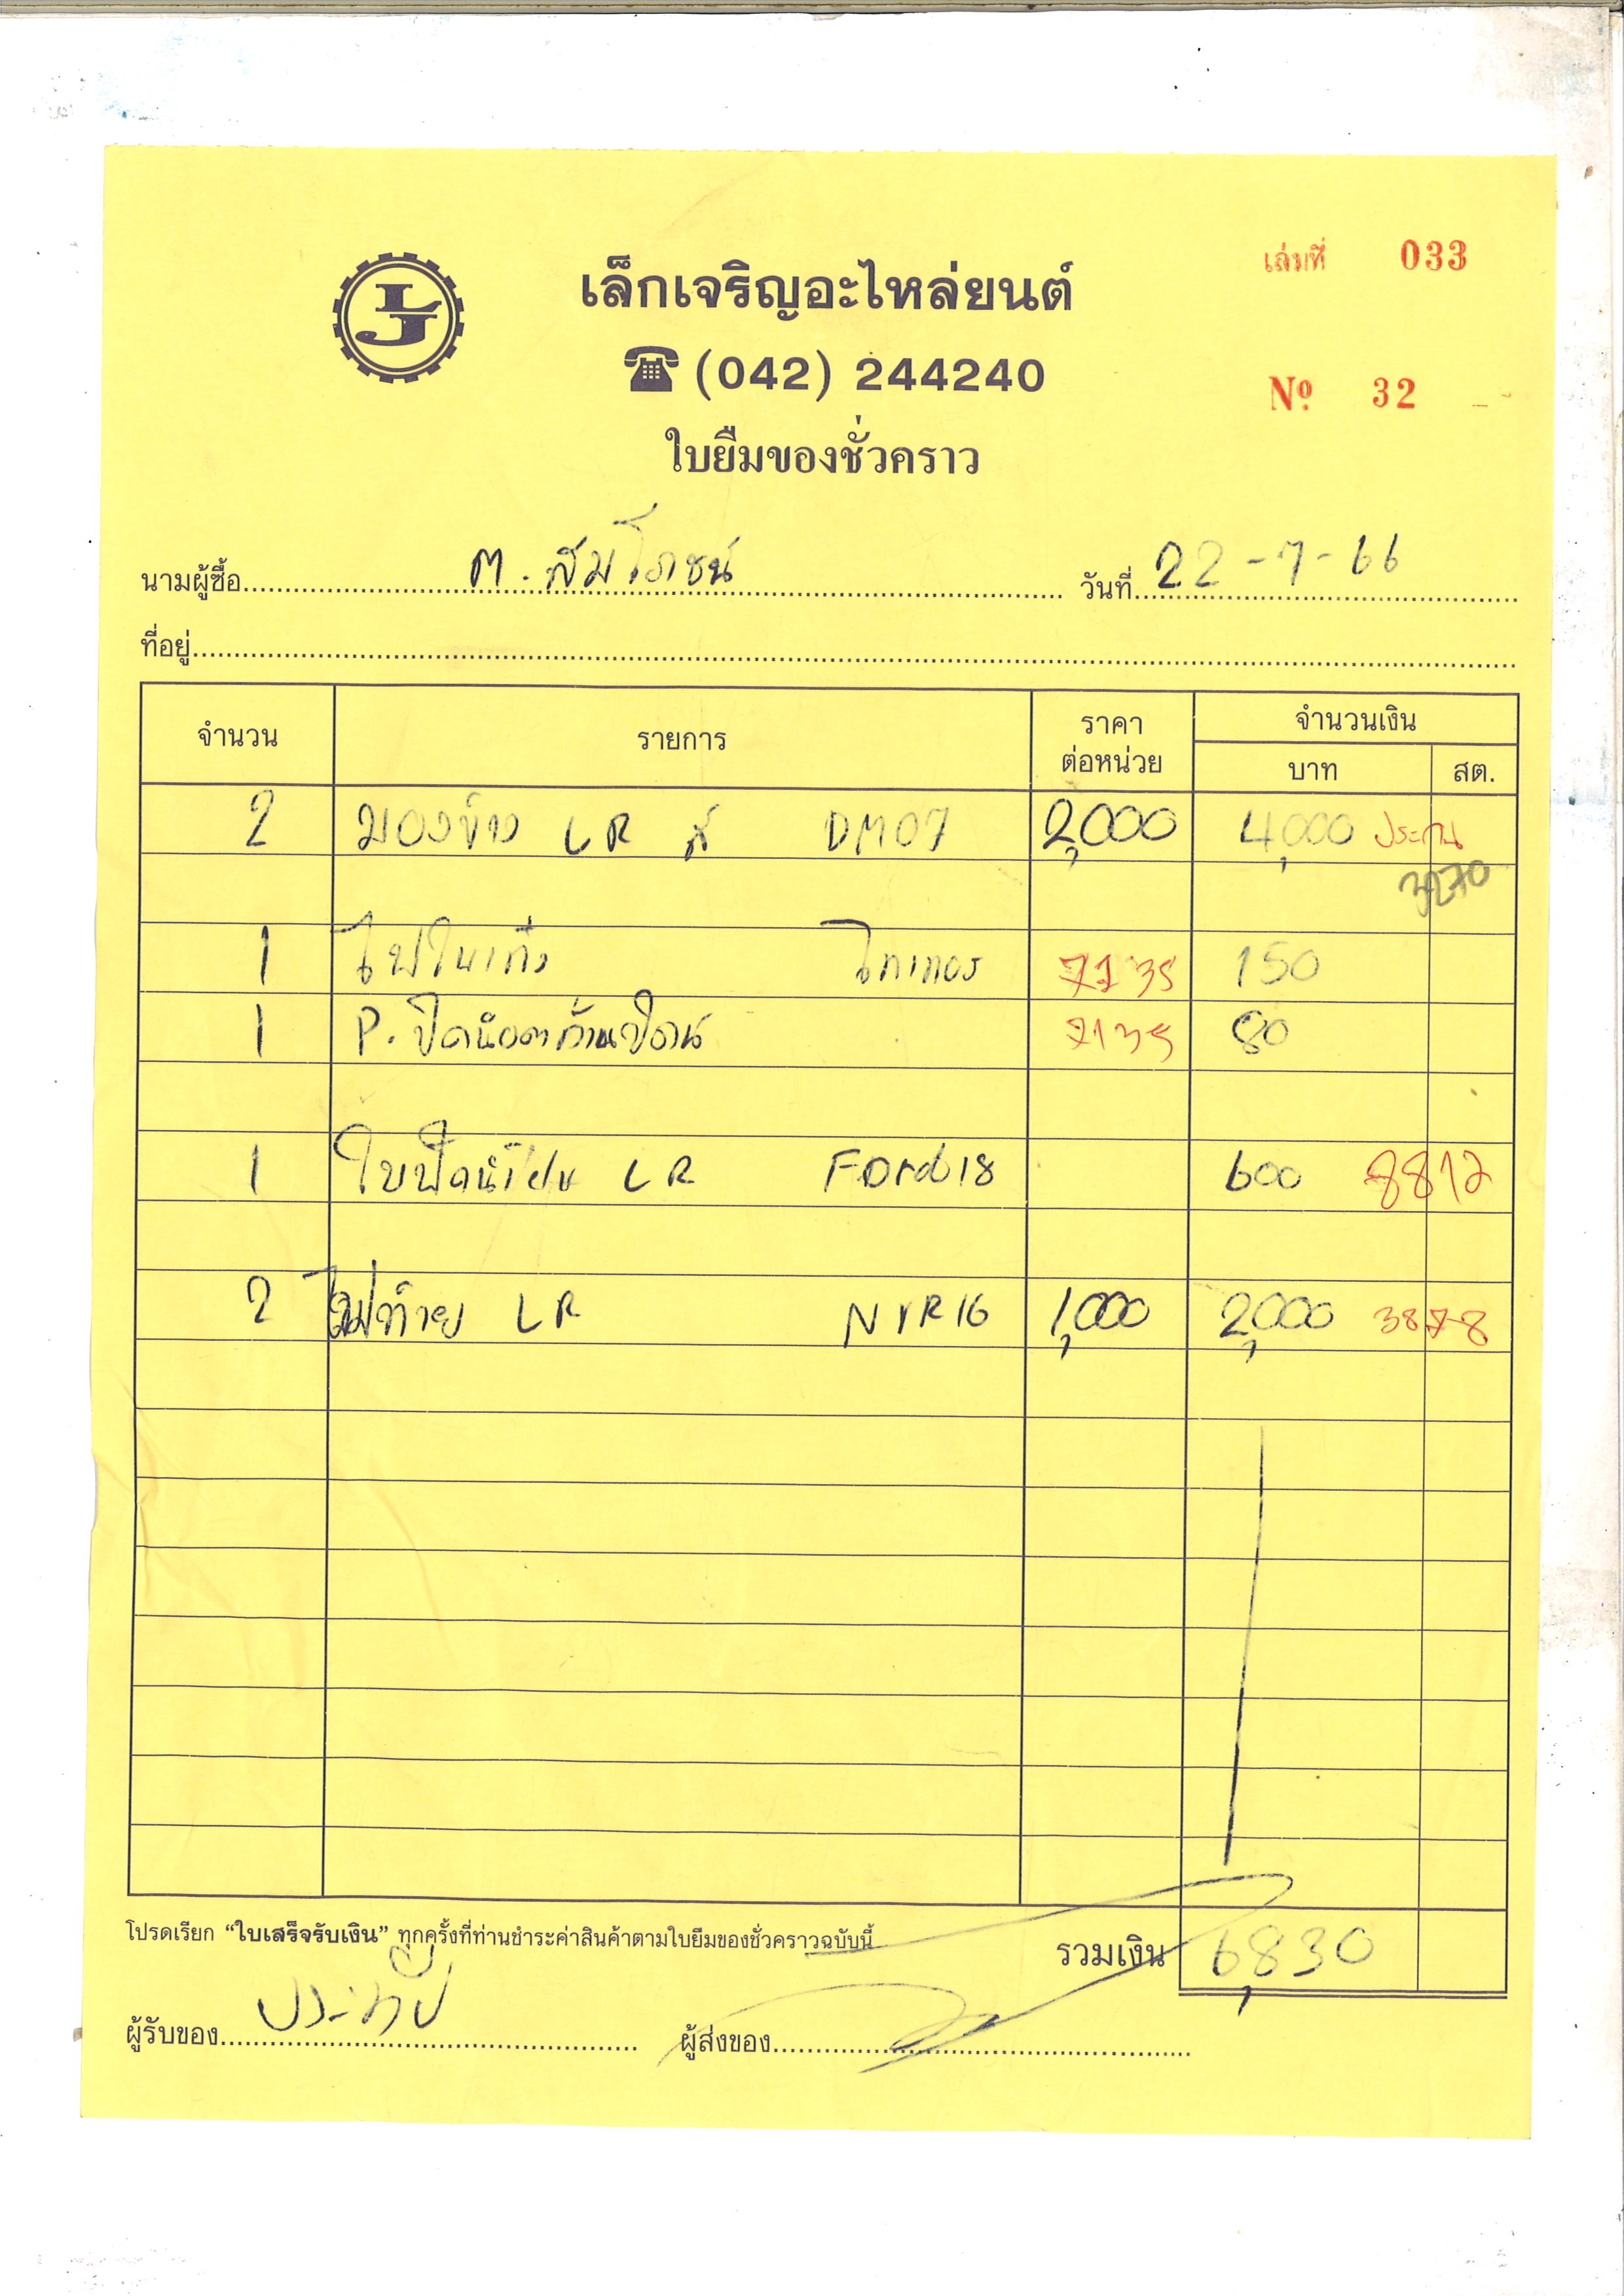 เล่มที่ 033
LJ
เล็กเจริญอะไหล่ยนต์
(042) 244240
Nº 32
ใบยืมของชั่วคราว
นามผู้ซื้อ ต. สมโภชน์ วันที่ 22-7-66
ที่อยู่
จำนวน รายการ ราคาต่อหน่วย จำนวนเงิน
บาท สต.
2 มองข้าง LR DM07 2,000 4,000 ประกัน
3270
1 ไฟในเก๋ง ไทเกอร์ 7135 150
1 P. ปิดน๊อตก้านปัดน้ำ 7135 80
1 LR Ford18 600 8812
2 ไฟท้าย LR NVR16 1,000 2,000 3878
โปรดเรียก “ใบเสร็จรับเงิน” ทุกครั้งที่ท่านชำระค่าสินค้าตามใบยืมของชั่วคราวฉบับนี้
รวมเงิน 6,830
ผู้รับของ ประทีป ผู้ส่งของ